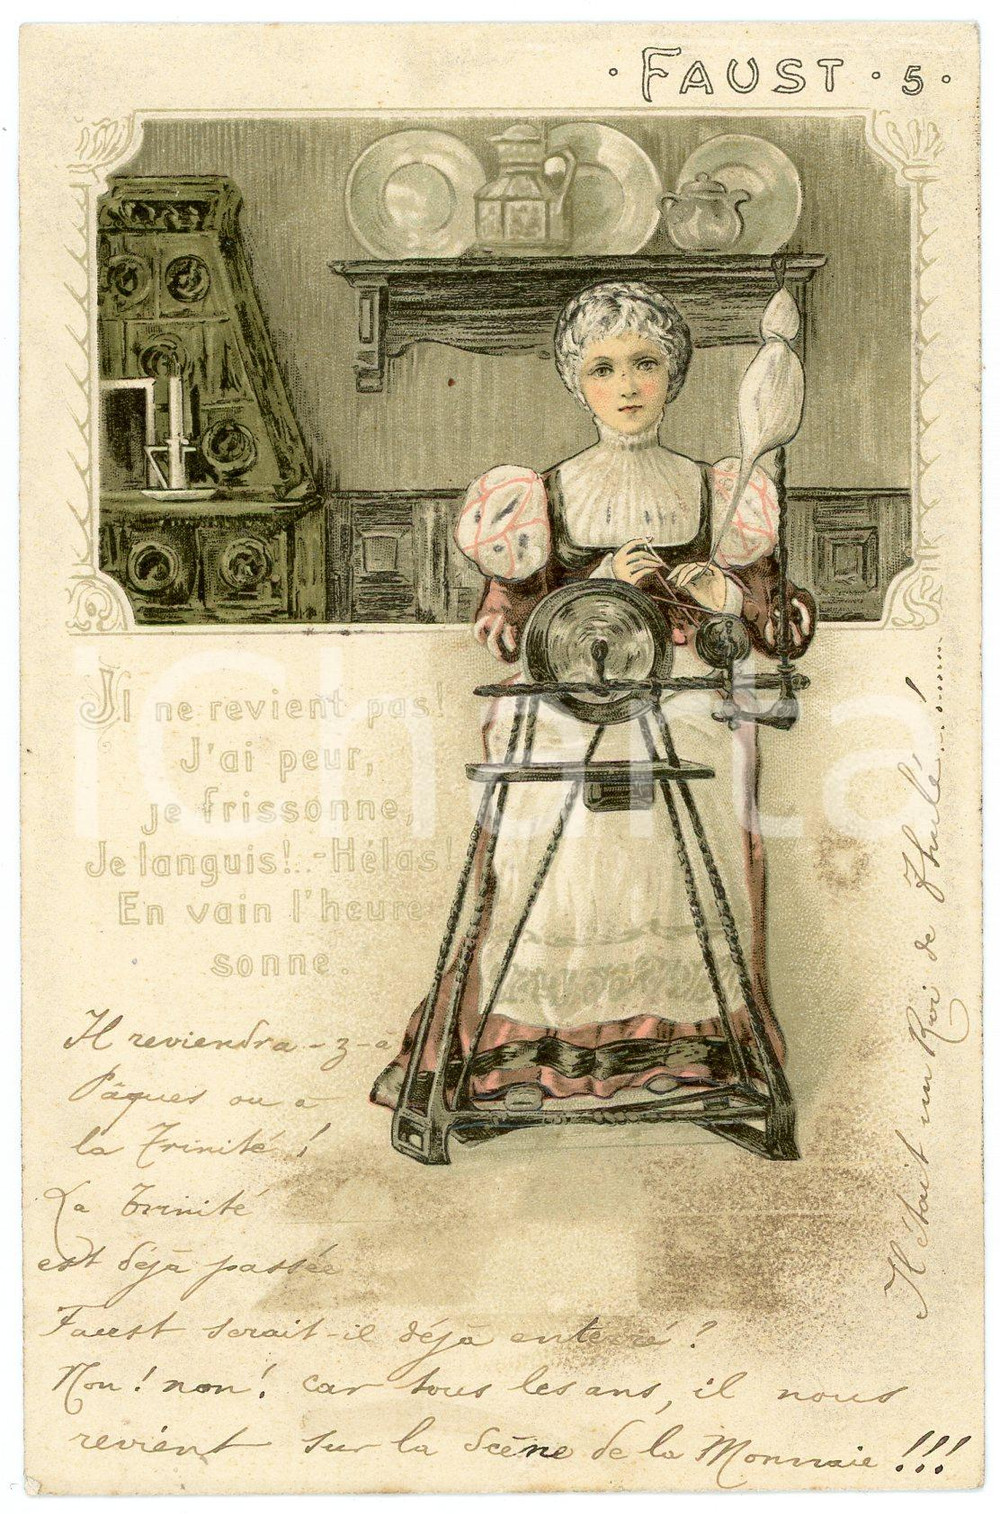 · FAUST · 5 ·
Il ne revient pas!
J'ai peur,
je frissonne,
Je languis!.. - Hélas!
En vain l'heure
sonne.
Il reviendra-z-a
Pâques ou a
la Trinité !
La Trinité
est déjà passée
Faust serait-il déjà enterré ?
Non ! non ! car tous les ans, il nous
revient sur la Scène de la Monnaie !!!
Il était un Roi de Thulé...!......
iCharta